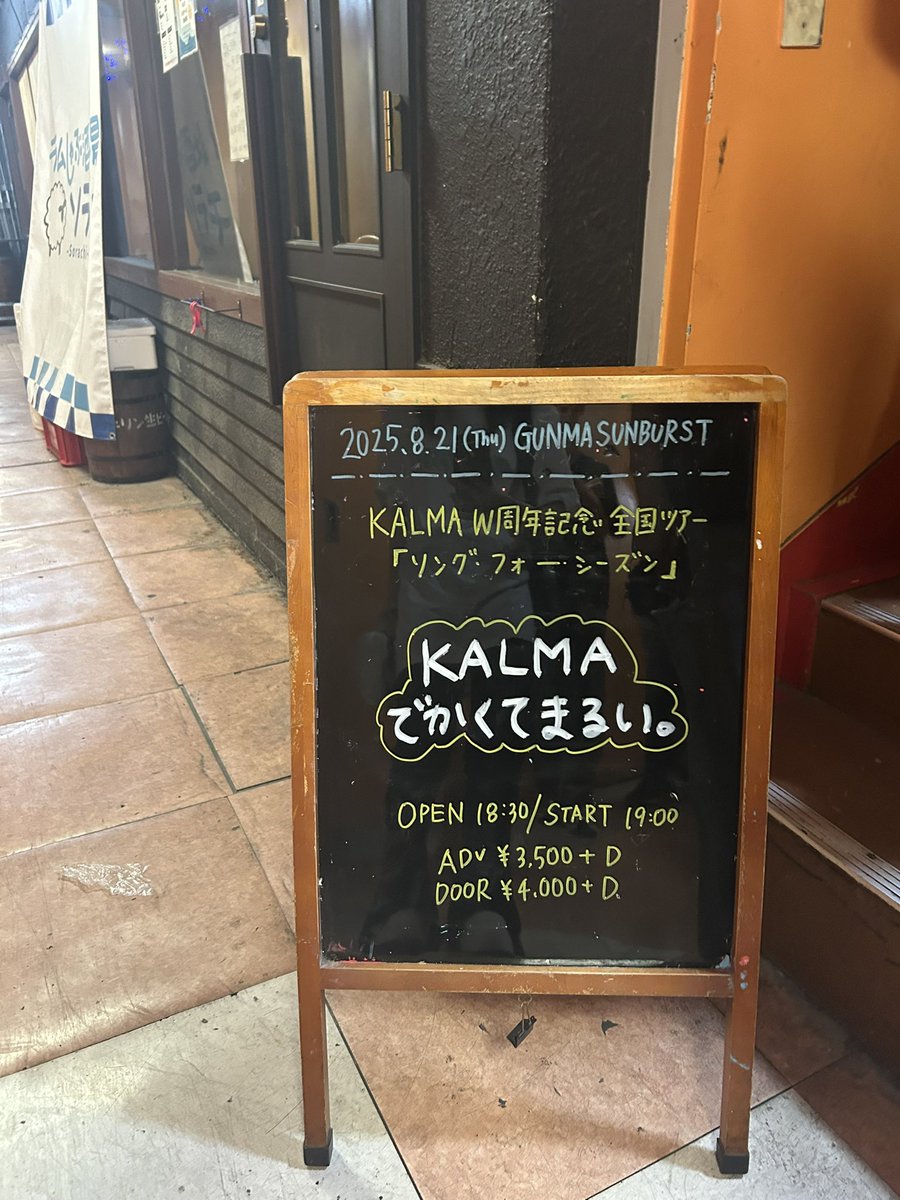 ラム
ソラ
-Sorachi-
2025.8.21(Thu) GUNMASUNBURST
KALMA W周年記念 全国ツアー
「ソング・フォー・シーズン」
KALMA
でかくてまるい。
OPEN 18:30/START 19:00
ADV ¥3,500+D
DOOR ¥4,000+D